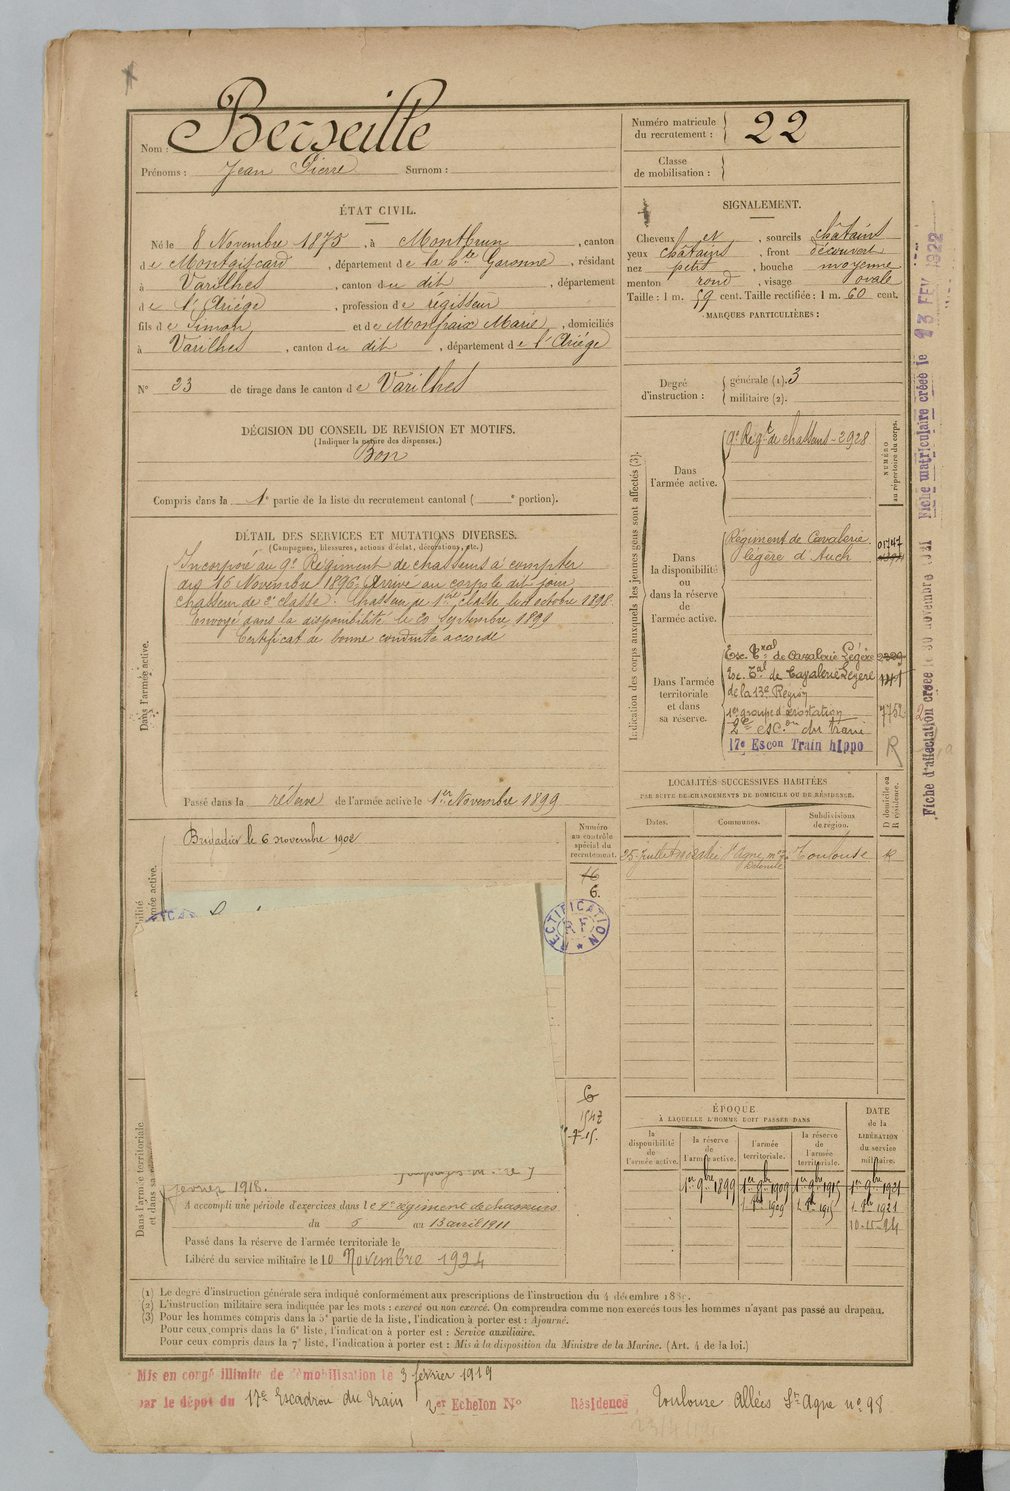 Berseille
Nom :
Prénoms : Jean Pierre Surnom :
ÉTAT CIVIL.
Né le 8 Novembre 1875, à Montbrun, canton
de Montgiscard, département de la Hte Garonne, résidant
à Varilhes, canton du dit, département
de l'Ariège, profession de régisseur
fils de Simon et de Monfraix Marie, domiciliés
à Varilhes, canton du dit, département de l'Ariège
No 23 de tirage dans le canton de Varilhes
DÉCISION DU CONSEIL DE REVISION ET MOTIFS.
(Indiquer la nature des dispenses.)
Bon
Compris dans la 1e partie de la liste du recrutement cantonal ( e portion).
DÉTAIL DES SERVICES ET MUTATIONS DIVERSES.
(Campagnes, blessures, actions d'éclat, décorations, etc.)
Dans l'armée active.
Incorporé au 9e Régiment de chasseurs à compter
du 16 Novembre 1896, Arrivé au corps le dit jour
chasseur de 2e classe. Chasseur de 1ère classe le 4 octobre 1898.
Envoyé dans la disponibilité le 20 Septembre 1899
Certificat de bonne conduite accordé
Passé dans la réserve de l'armée active le 1er Novembre 1899
Brigadier le 6 novembre 1902
Numéro
au contrôle
spécial du
recrutement.
16
6.
RECTIFICATION
RF
6
1547
Dans l'armée territoriale
et dans sa
février 1918.
A accompli une période d'exercices dans le 9e régiment de chasseurs
du 5 au 13 avril 1911
Passé dans la réserve de l'armée territoriale le
Libéré du service militaire le 10 Novembre 1924
Numéro matricule
du recrutement : 22
Classe
de mobilisation :
SIGNALEMENT.
Cheveux et, sourcils châtains
yeux châtains, front découvert
nez petit, bouche moyenne
menton rond, visage ovale
Taille : 1 m. 59 cent. Taille rectifiée : 1 m. 60 cent.
MARQUES PARTICULIÈRES :
Degré
d'instruction :
générale (1). 3
militaire (2).
Indication des corps auxquels les jeunes gens sont affectés (3).
NUMÉRO
au répertoire du corps.
Dans
l'armée active.
9e Régt de chasseurs - 2928
Dans
la disponibilité
ou
dans la réserve
de
l'armée active.
Régiment de Cavalerie
légère d'Auch
01747
Dans l'armée
territoriale
et dans
sa réserve.
Esc. Tral de Cavalerie Légère 2329
Esc. Tal de Cavalerie Légère
de la 13e Région
1er groupe d'aérostation
2e esc.on du train
17e Escon Train hippo R
LOCALITÉS SUCCESSIVES HABITÉES
PAR SUITE DE CHANGEMENTS DE DOMICILE OU DE RÉSIDENCE.
D domicile ou
R résidence.
Dates.
Communes.
Subdivisions
de région.
25 juillet 1902
Toulouse
R
ÉPOQUE
À LAQUELLE L'HOMME DOIT PASSER DANS
DATE
de la
LIBÉRATION
du service
militaire.
la
disponibilité
de
l'armée active.
la réserve
de
l'armée active.
l'armée
territoriale.
la réserve
de
l'armée
territoriale.
1er 9bre 1899
1er 9bre 1909
1er 9bre 1915
1er 9bre 1921
10-11-24
(1) Le degré d'instruction générale sera indiqué conformément aux prescriptions de l'instruction du 4 décembre 1889.
(2) L'instruction militaire sera indiquée par les mots : exercé ou non exercé. On comprendra comme non exercés tous les hommes n'ayant pas passé au drapeau.
(3) Pour les hommes compris dans la 5e partie de la liste, l'indication à porter est : Ajourné.
Pour ceux compris dans la 6e liste, l'indication à porter est : Service auxiliaire.
Pour ceux compris dans la 7e liste, l'indication à porter est : Mis à la disposition du Ministre de la Marine. (Art. 4 de la loi.)
Mis en congé illimité de démobilisation le 3 février 1919
par le dépôt du 17e Escadron du train 2er Echelon No Résidence Toulouse Allées St Agne no 98
Fiche matriculaire créée le 23 FEV. 1922
Fiche d'affectation créée le 30 novembre 1921